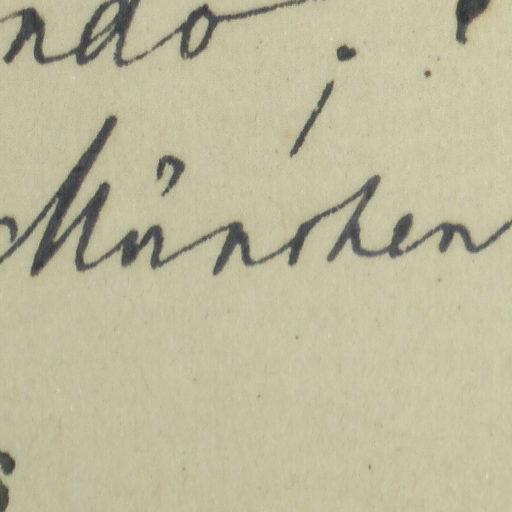 ndo ;
München